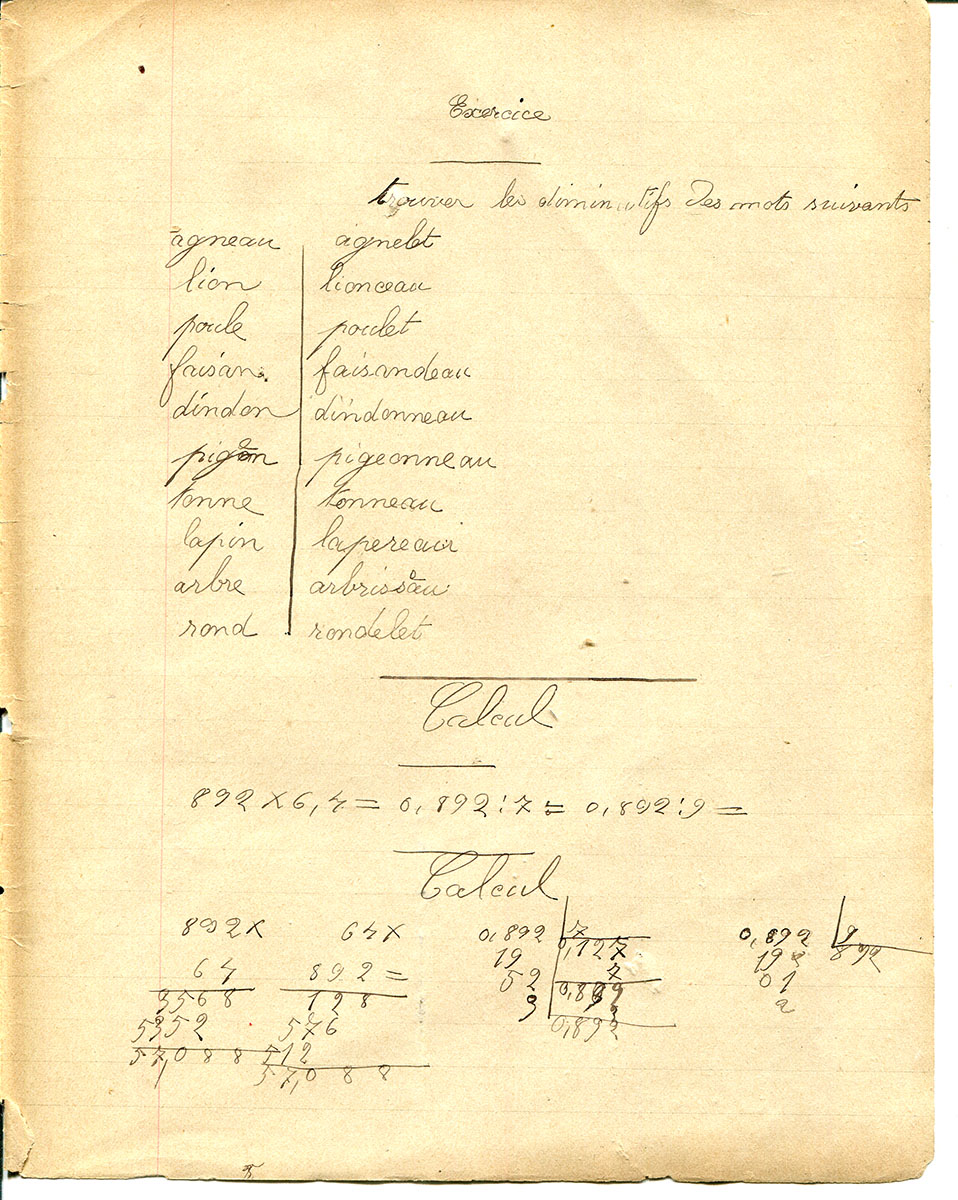 Exercice
trouver les diminutifs des mots suivants
agneau agnelet
lion lionceau
poule poulet
faisan faisandeau
dindon dindonneau
pigeon pigeonneau
tonne tonneau
lapin lapereau
arbre arbrisseau
rond rondelet
Calcul
892 × 6,4 = 0,892 : 7 = 0,892 : 9 =
Calcul
892 × 64 × 0,892 7 0,892 9
64 892 = 19 0,127 192
3568 128 52 7 01
5352 576 3 0,889 2
57,088 512 3
57,088 0,892